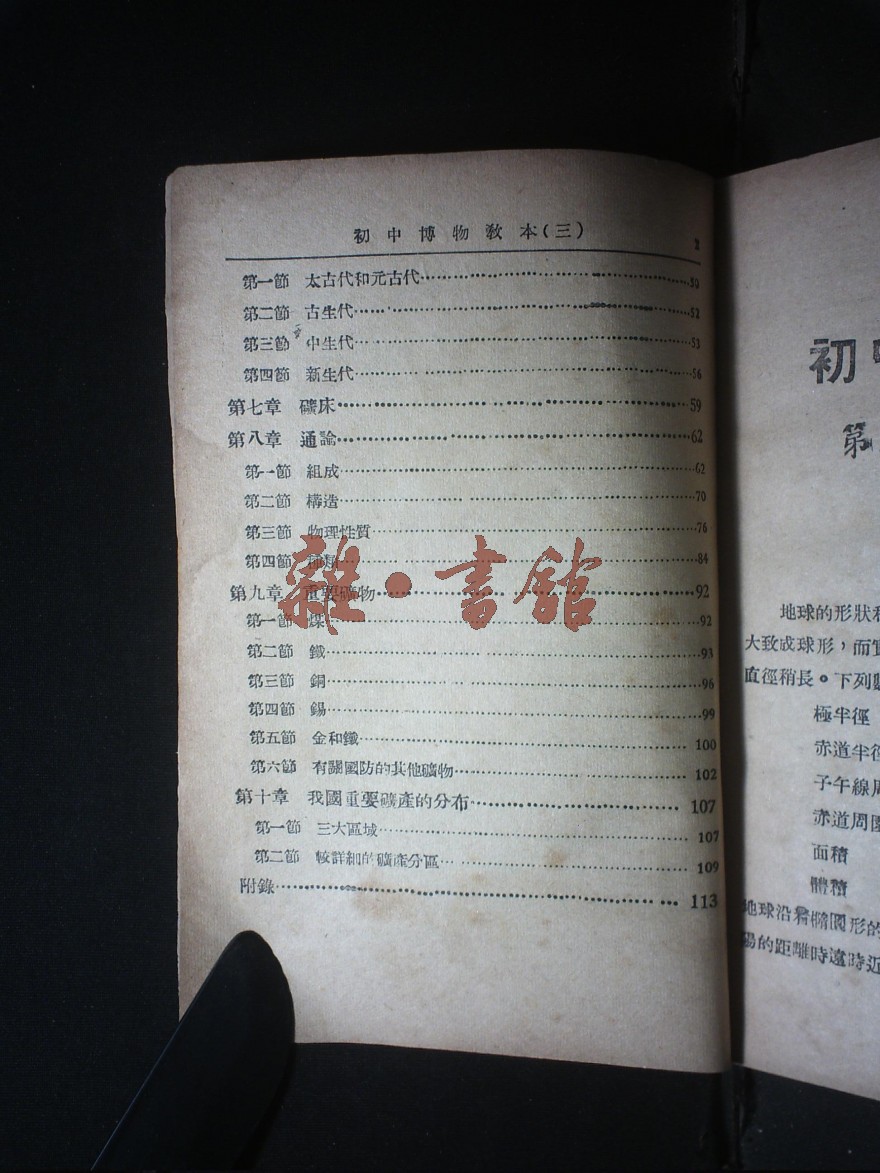 初中博物教本(三) 2
第一節 太古代和元古代 50
第二節 古生代 52
第三節 中生代 53
第四節 新生代 56
第七章 礦床 59
第八章 通論 62
第一節 組成 62
第二節 構造 70
第三節 物理性質 76
第四節 種類 84
第九章 重要礦物 92
第一節 煤 92
第二節 鐵 93
第三節 銅 96
第四節 錫 99
第五節 金和 100
第六節 有關國防的其他礦物 102
第十章 我國重要礦產的分布 107
第一節 三大區域 107
第二節 較詳細的礦產分區 109
附錄 113
雜·書館
初
第
地球的形狀
大致成球形,而
直徑稍長。下列
極半徑
赤道半徑
子午線周
赤道周圍
面積
體積
地球沿着橢圓形的
陽的距離時遠時近